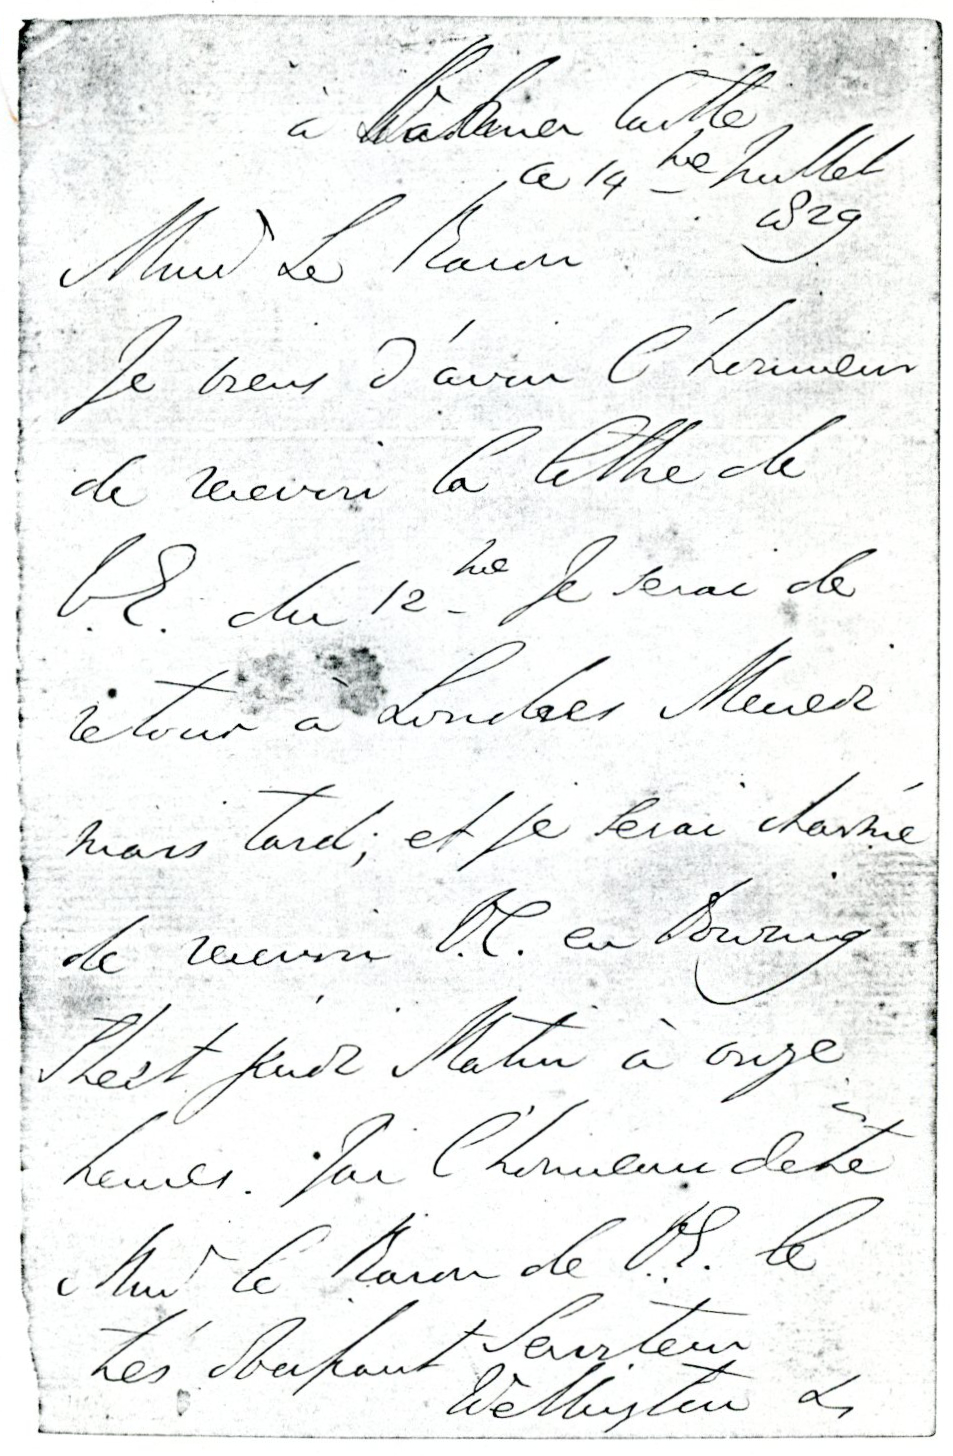 à Walmer Castle
ce 14me Juillet
1829
Monsr Le Baron
Je viens d'avoir l'honneur
de recevoir la lettre de
V.E. du 12me Je serai de
retour à Londres Mercredi
mais tard; et je serai charmé
de recevoir V.E. en Downing
Street Jeudi Matin à onze
heures. J'ai l'honneur d'être
Monsr le Baron de V.E. le
très obeissant Serviteur
Wellington